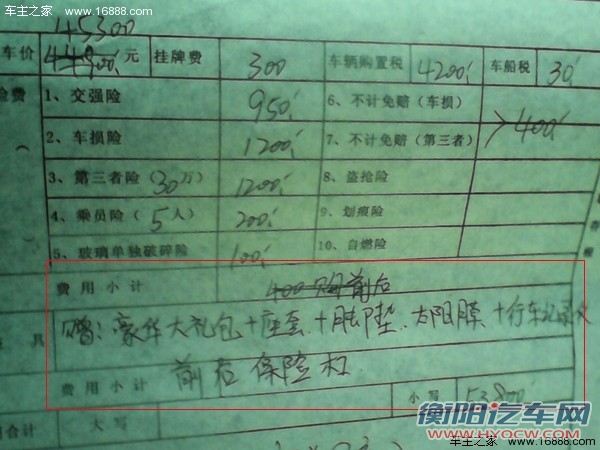 车主之家 www.16888.com
45300
车价 44900 元 挂牌费 300 车辆购置税 4200 车船税 30
险费 1、交强险 950 6、不计免赔（车损）
2、车损险 1200 7、不计免赔（第三者） 400
3、第三者险（30万） 1200 8、盗抢险
4、乘员险（5人） 200 9、划痕险
5、玻璃单独破碎险 100 10、自燃险
费用小计 400 前后
具 赠：豪华大礼包+座套+脚垫、太阳膜+行车记录仪
前后保险杠
费用小计 小写 53800
用合计 大写
衡阳汽车网
WWW.HYQCW.COM
车主之家 www.16888.com